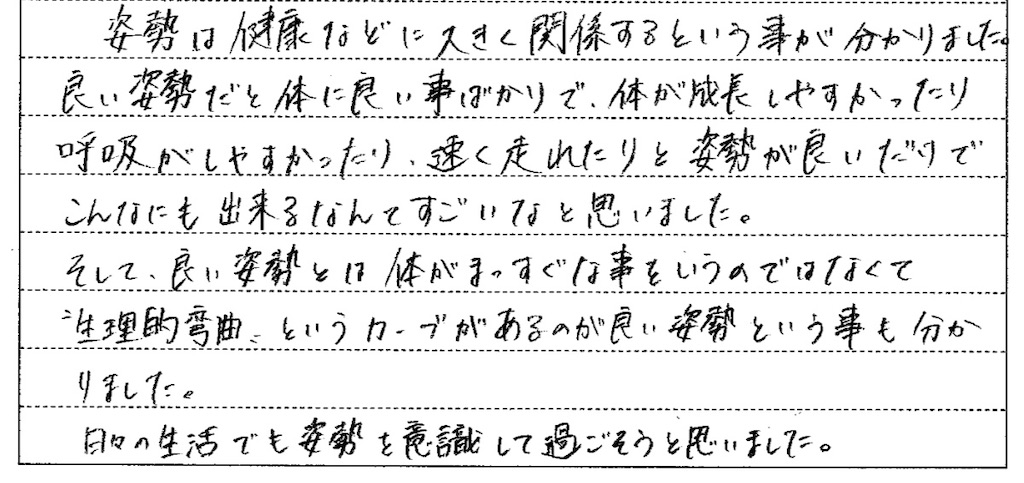 姿勢は健康などに大きく関係するという事が分かりました。
良い姿勢だと体に良い事ばかりで、体が成長しやすかったり
呼吸がしやすかったり、速く走れたりと姿勢が良いだけで
こんなにも出来るなんてすごいなと思いました。
そして、良い姿勢とは体がまっすぐな事をいうのではなくて
"生理的弯曲"というカーブがあるのが良い姿勢という事も分か
りました。
日々の生活でも姿勢を意識して過ごそうと思いました。